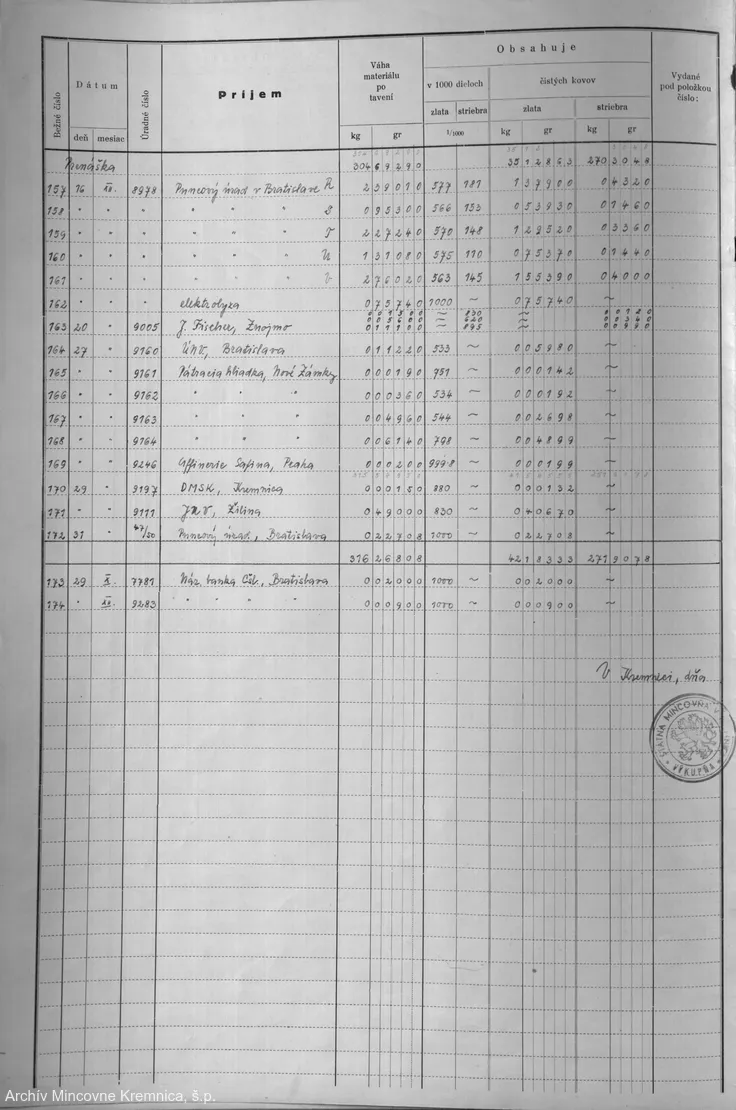 Bežné číslo Dátum deň mesiac Úradné číslo Príjem Váha materiálu po tavení kg gr Obsahuje v 1000 dieloch zlata striebra 1/1000 čistých kovov zlata kg gr striebra kg gr Vydané pod položkou číslo:
Prenáška 304 6 9 2 9 0 35 1 2 8 6 3 270 3 0 4 8
157 16 XII. 8978 Puncový úrad v Bratislave R 2 3 9 0 1 0 577 181 1 3 7 9 0 0 0 4 3 2 0
158 " " " " " " S 0 9 5 3 0 0 566 153 0 5 3 9 3 0 0 1 4 6 0
159 " " " " " " T 2 2 7 2 4 0 570 148 1 2 9 5 2 0 0 3 3 6 0
160 " " " " " " U 1 3 1 0 8 0 575 110 0 7 5 3 7 0 0 1 4 4 0
161 " " " " " " V 2 7 6 0 2 0 563 145 1 5 5 3 9 0 0 4 0 0 0
162 " " " elektrolyza 0 7 5 7 4 0 1000 ~ 0 7 5 7 4 0 ~
~ 830 ~
0 0 5 6 0 0 ~ 620 ~ 0 0 3 4 0
163 20 " 9005 J. Fischer, Znojmo 0 1 1 1 0 0 ~ 895 ~ 0 0 9 9 0
164 27 " 9160 ÚNV, Bratislava 0 1 1 2 2 0 533 ~ 0 0 5 9 8 0 ~
165 " " 9161 Pátracia hliadka, Nové Zámky 0 0 0 1 9 0 751 ~ 0 0 0 1 4 2 ~
166 " " 9162 " " " 0 0 0 3 6 0 534 ~ 0 0 0 1 9 2 ~
167 " " 9163 " " " 0 0 4 9 6 0 544 ~ 0 0 2 6 9 8 ~
168 " " 9164 " " " 0 0 6 1 4 0 798 ~ 0 0 4 8 9 9 ~
169 " " 9246 Affinerie Safina, Praha 0 0 0 2 0 0 999·8 ~ 0 0 0 1 9 9 ~
170 29 " 9197 DMSK, Kremnica 0 0 0 1 5 0 880 ~ 0 0 0 1 3 2 ~
171 " " 9111 JNV, Žilina 0 4 9 0 0 0 830 ~ 0 4 0 6 7 0 ~
172 31 47/50 Puncový úrad, Bratislava 0 2 2 7 0 8 1000 ~ 0 2 2 7 0 8 ~
316 2 6 8 0 8 42 1 8 3 3 3 271 9 0 7 8
173 29 X. 7781 Nár. banka Čsl., Bratislava 0 0 2 0 0 0 1000 ~ 0 0 2 0 0 0 ~
174 " XII. 9283 " " " " 0 0 0 9 0 0 1000 ~ 0 0 0 9 0 0 ~
V Kremnici, dňa
ŠTÁTNA MINCOVŇA V
* VÝKUPŇA *
Archív Mincovne Kremnica, š.p.